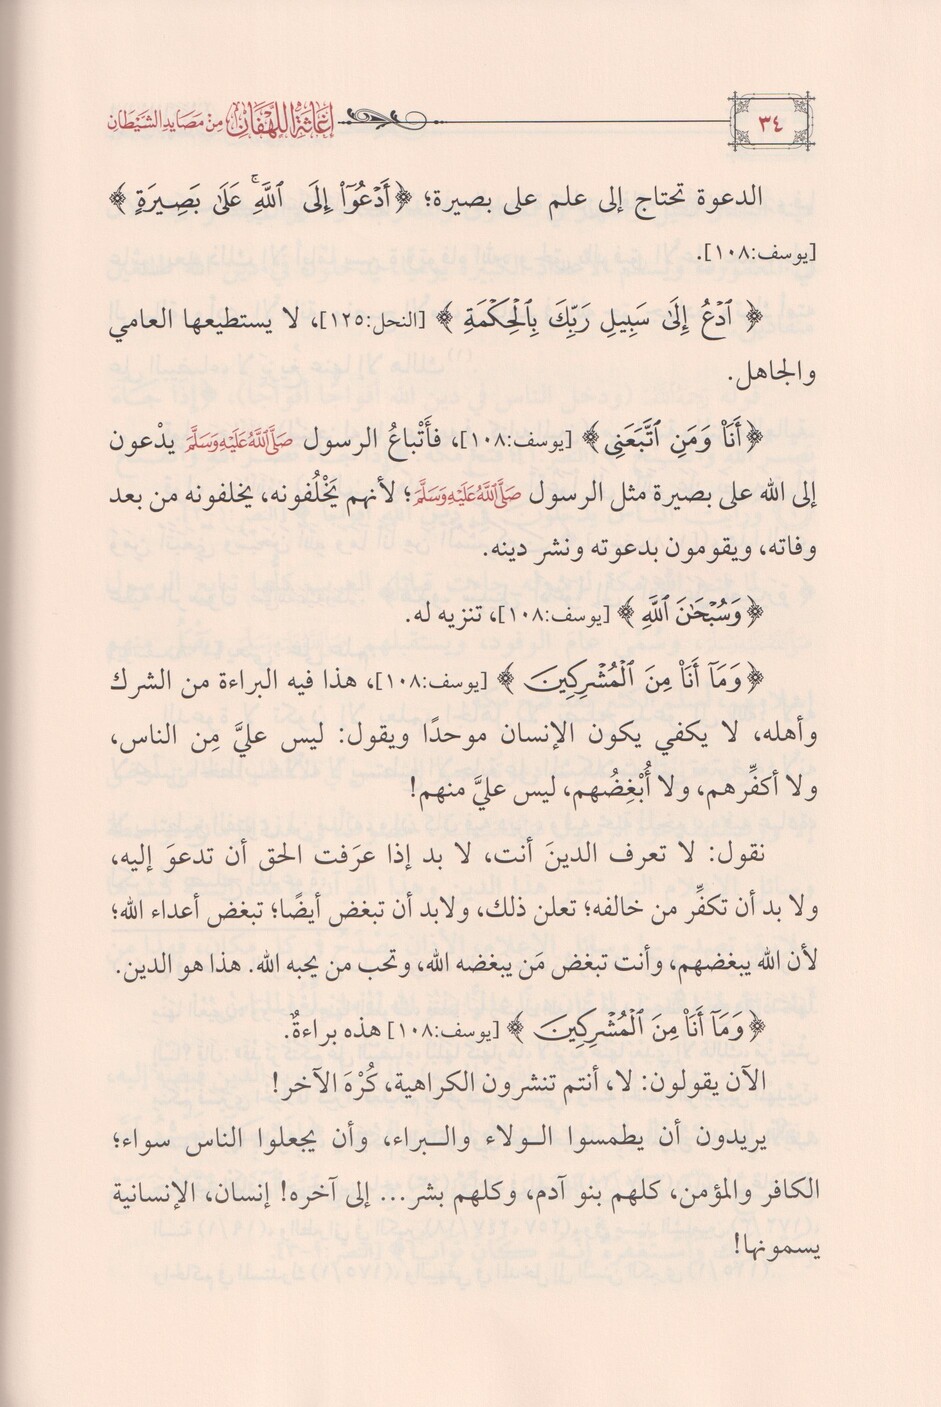 ٣٤
إغاثة اللهفان من مصايد الشيطان
الدعوة تحتاج إلى علم على بصيرة؛ ﴿أَدۡعُوٓاْ إِلَى ٱللَّهِۚ عَلَىٰ بَصِيرَةٍ﴾
[يوسف:١٠٨].
﴿ٱدۡعُ إِلَىٰ سَبِيلِ رَبِّكَ بِٱلۡحِكۡمَةِ﴾ [النحل:١٢٥]، لا يستطيعها العامي
والجاهل.
﴿أَنَا۠ وَمَنِ ٱتَّبَعَنِي﴾ [يوسف:١٠٨]، فأَتْباعُ الرسول صَلَّى اللَّهُ عَلَيْهِ وَسَلَّمَ يدْعون
إلى الله على بصيرة مثل الرسول صَلَّى اللَّهُ عَلَيْهِ وَسَلَّمَ؛ لأنهم يَخْلُفونه، يخلفونه من بعد
وفاته، ويقومون بدعوته ونشر دينه.
﴿وَسُبۡحَٰنَ ٱللَّهِ﴾ [يوسف:١٠٨]، تنزيه له.
﴿وَمَآ أَنَا۠ مِنَ ٱلۡمُشۡرِكِينَ﴾ [يوسف:١٠٨]، هذا فيه البراءة من الشرك
وأهله، لا يكفي يكون الإنسان موحدًا ويقول: ليس عليَّ مِن الناس،
ولا أكفِّرهم، ولا أُبْغِضُهم، ليس عليَّ منهم!
نقول: لا تعرف الدينَ أنت، لا بد إذا عرَفت الحق أن تدعوَ إليه،
ولا بد أن تكفِّر من خالفه؛ تعلن ذلك، ولابد أن تبغض أيضًا؛ تبغض أعداء الله؛
لأن الله يبغضهم، وأنت تبغض مَن يبغضه الله، وتحب من يحبه الله. هذا هو الدين.
﴿وَمَآ أَنَا۠ مِنَ ٱلۡمُشۡرِكِينَ﴾ [يوسف:١٠٨] هذه براءةٌ.
الآن يقولون: لا، أنتم تنشرون الكراهية، كُرْهَ الآخر!
يريدون أن يطمسوا الـولاء والـبراء، وأن يجعلوا الناس سواء؛
الكافر والمؤمن، كلهم بنو آدم، وكلهم بشر... إلى آخره! إنسان، الإنسانية
يسمونها!